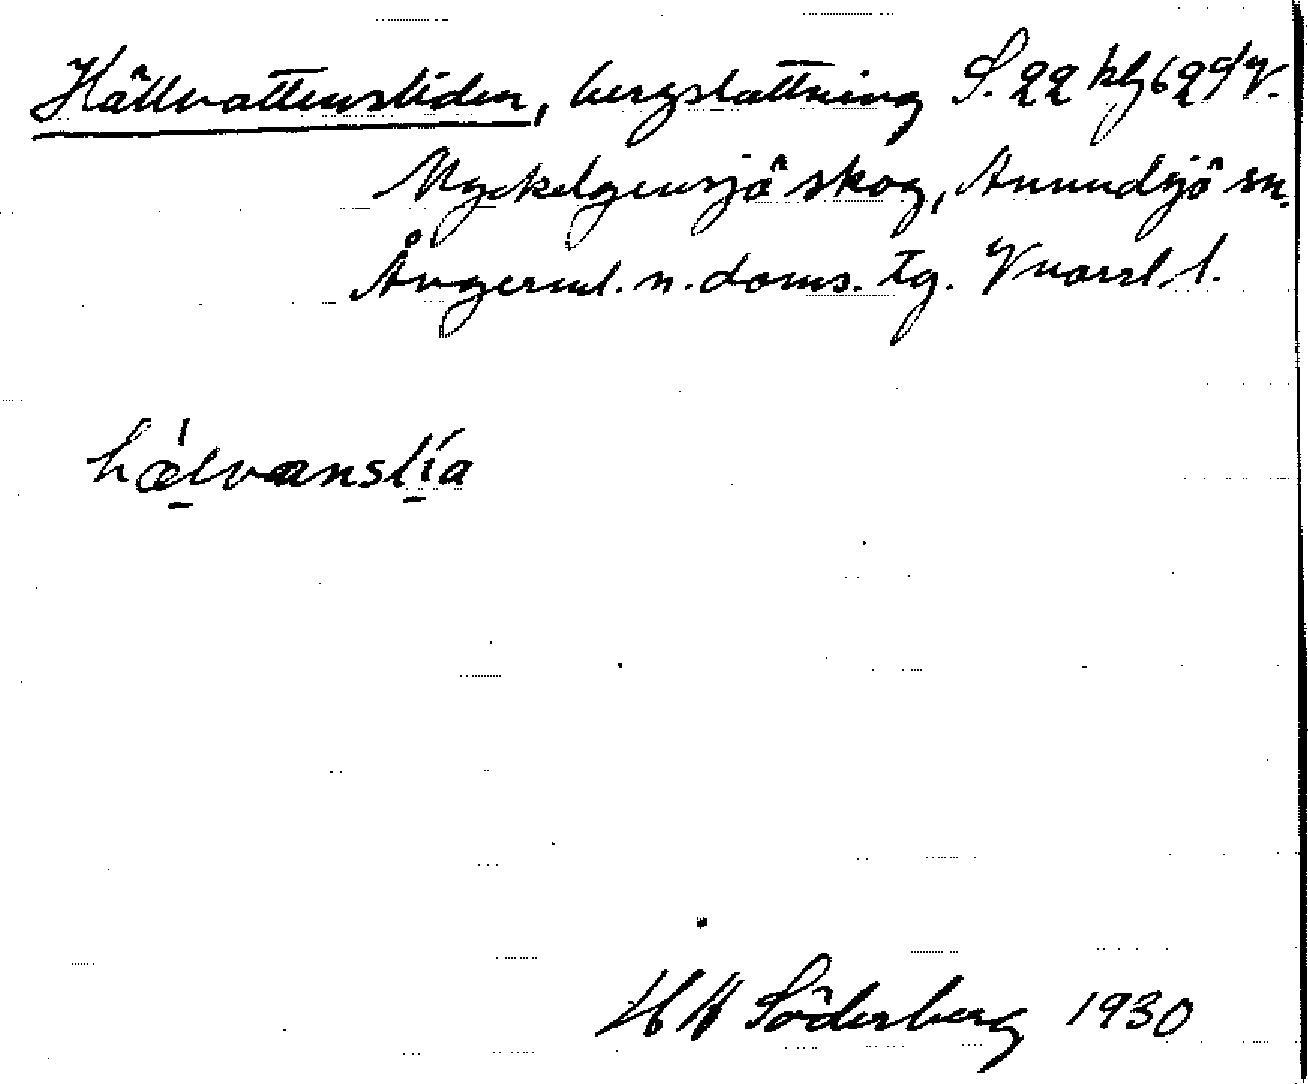 Hällvattensliden, bergslattning S. 22 kbl 62 SV.
Myckelgensjö skog, Anundsjö sn.
Ångerml. n. doms. tg. Vnorrl l.
hælvanslia
H Söderberg 1930